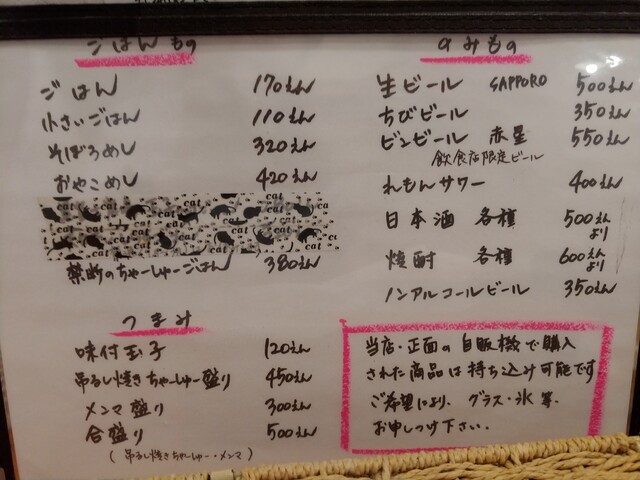 ごはんもの
ごはん 170えん
小さいごはん 110えん
そぼろめし 320えん
おやこめし 420えん
cat cat cat cat cat
cat cat cat
禁断のちゃーしゅーごはん 380えん
つまみ
味付玉子 120えん
吊るし焼きちゃーしゅー盛り 450えん
メンマ盛り 300えん
合盛り 500えん
(吊るし焼きちゃーしゅー・メンマ)
のみもの
生ビール SAPPORO 500えん
ちびビール 350えん
ビンビール 赤星 550えん
飲食店限定ビール
れもんサワー 400えん
日本酒 各種 500えんより
焼酎 各種 600えんより
ノンアルコールビール 350えん
当店・正面の自販機で購入
された商品は持ち込み可能です
ご希望により、グラス・氷等、
お申しつけ下さい.